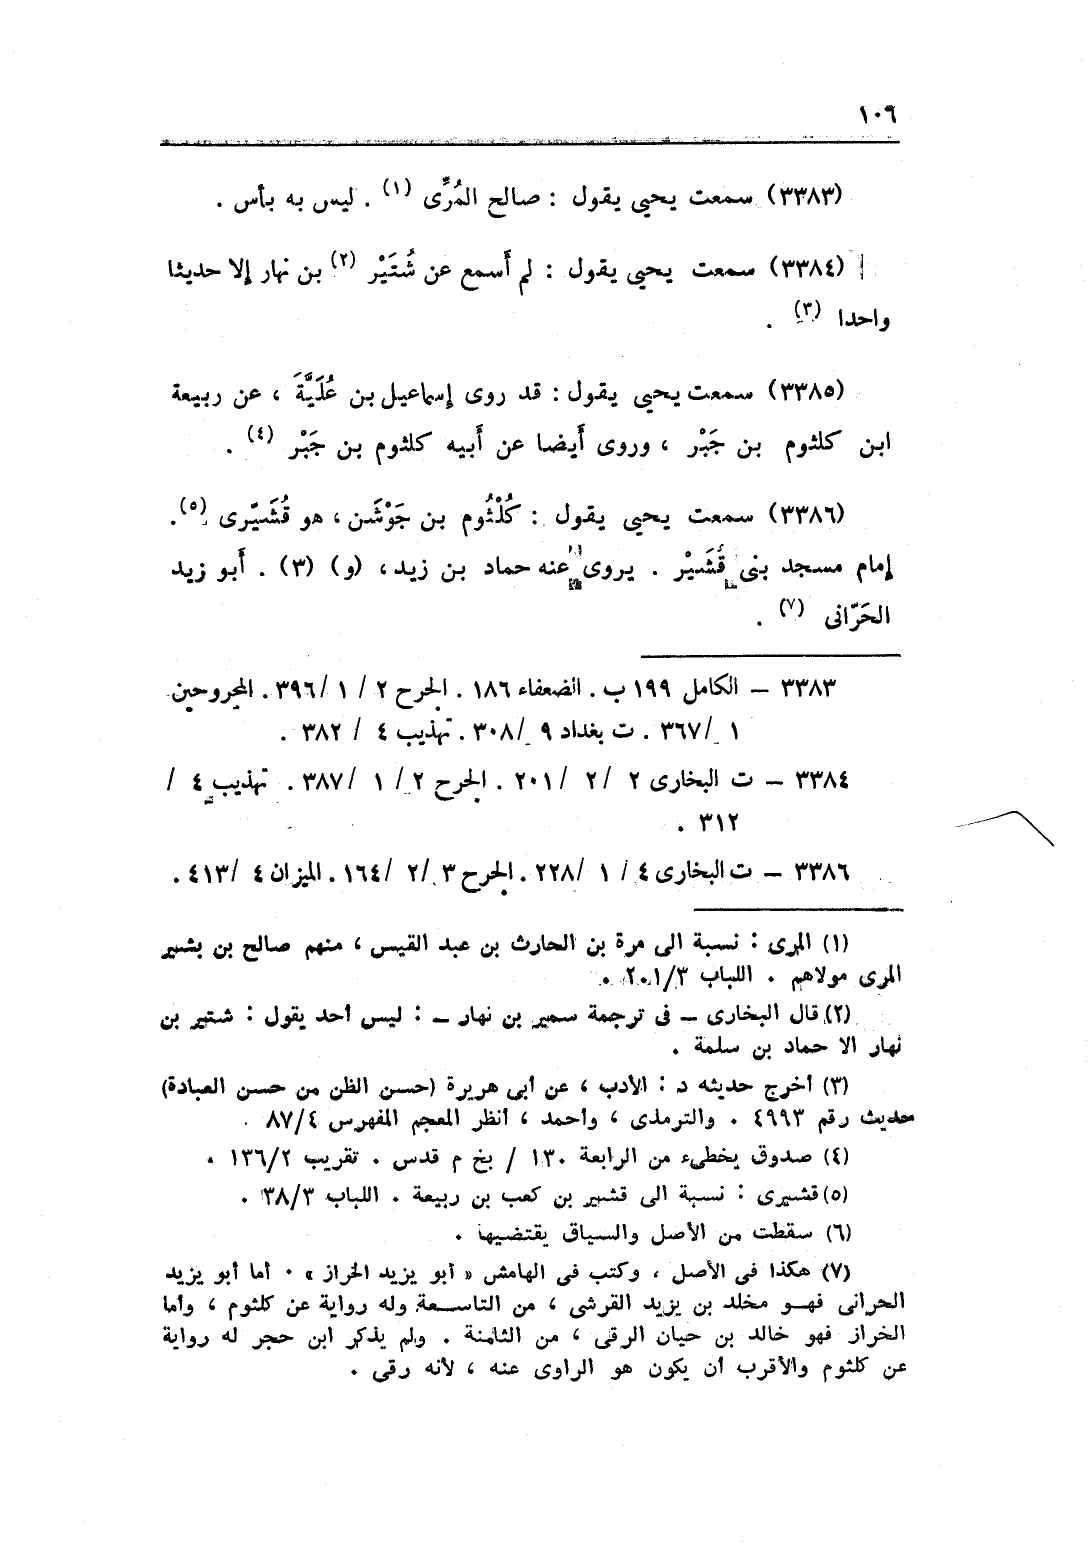 ١٠٦
(٣٣٨٣) سمعت يحيى يقول : صالح المُرِّى (١) . ليس به بأس .
(٣٣٨٤) سمعت يحيى يقول : لم أَسمع عن شُتَيْر (٢) بن نهار إلا حديثا
واحدا (٣) .
(٣٣٨٥) سمعت يحيى يقول : قد روى إسماعيل بن عُلَيَّةَ ، عن ربيعة
ابن كلثوم بن جَبْر ، وروى أَيضا عن أَبيه كلثوم بن جَبْر (٤) .
(٣٣٨٦) سمعت يحيى يقول : كُلْثُوم بن جَوْشَن ، هو قُشَيّرى (٥) .
إمام مسجد بنى قُشَيْر . يروى عنه حماد بن زيد ، (و) (٣) . أَبو زيد
الحَرّانى (٧) .
٣٣٨٣ – الكامل ١٩٩ ب . الضعفاء ١٨٦ . الجرح ٢ / ١ / ٣٩٦ . المجروحين
١ / ٣٦٧ . ت بغداد ٩ / ٣٠٨ . تهذيب ٤ / ٣٨٢ .
٣٣٨٤ – ت البخارى ٢ / ٢ / ٢٠١ . الجرح ٢ / ١ / ٣٨٧ . تهذيب ٤ /
٣١٢ .
٣٣٨٦ – ت البخارى ٤ / ١ / ٢٢٨ . الجرح ٣ / ٢ / ١٦٤ . الميزان ٤ / ٤١٣ .
(١) المرى : نسبة الى مرة بن الحارث بن عبد القيس ، منهم صالح بن بشير
المرى مولاهم . اللباب ٢٠١/٣ .
(٢) قال البخارى – فى ترجمة سمير بن نهار – : ليس أحد يقول : شتير بن
نهار الا حماد بن سلمة .
(٣) أخرج حديثه د : الأدب ، عن أبى هريرة (حسن الظن من حسن العبادة)
حديث رقم ٤٩٩٣ . والترمذى ، وأحمد ، أنظر المعجم المفهرس ٨٧/٤ .
(٤) صدوق يخطىء من الرابعة ١٣٠ / بخ م قدس . تقريب ١٣٦/٢ .
(٥) قشيرى : نسبة الى قشير بن كعب بن ربيعة . اللباب ٣٨/٣ .
(٦) سقطت من الأصل والسياق يقتضيها .
(٧) هكذا فى الأصل ، وكتب فى الهامش « أبو يزيد الخراز » . أما أبو يزيد
الحرانى فهو مخلد بن يزيد القرشى ، من التاسعة وله رواية عن كلثوم ، وأما
الخراز فهو خالد بن حيان الرقى ، من الثامنة . ولم يذكر ابن حجر له رواية
عن كلثوم والأقرب أن يكون هو الراوى عنه ، لأنه رقى .